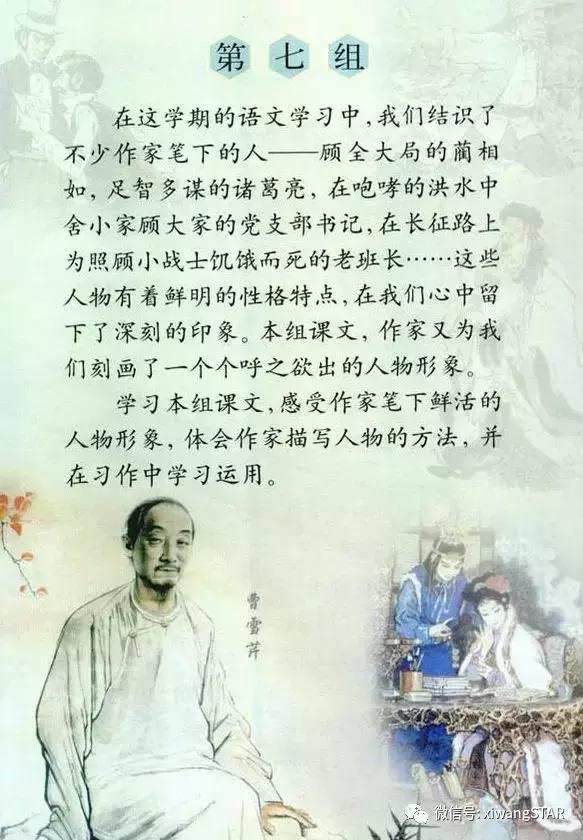 第七组
在这学期的语文学习中，我们结识了
不少作家笔下的人——顾全大局的蔺相
如，足智多谋的诸葛亮，在咆哮的洪水中
舍小家顾大家的党支部书记，在长征路上
为照顾小战士饥饿而死的老班长……这些
人物有着鲜明的性格特点，在我们心中留
下了深刻的印象。本组课文，作家又为我
们刻画了一个个呼之欲出的人物形象。
学习本组课文，感受作家笔下鲜活的
人物形象，体会作家描写人物的方法，并
在习作中学习运用。
曹雪芹
微信号: xiwangSTAR